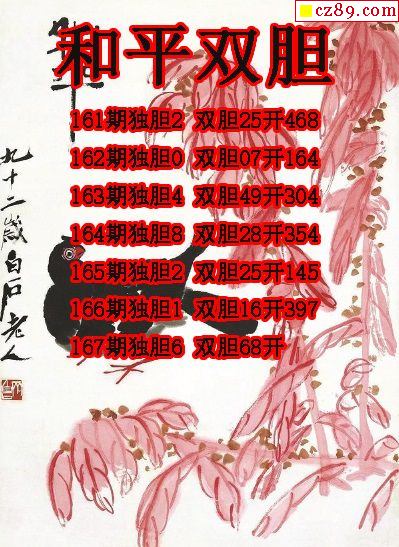 cz89.com
和平双胆
161期独胆2 双胆25开468
162期独胆0 双胆07开164
163期独胆4 双胆49开304
164期独胆8 双胆28开354
165期独胆2 双胆25开145
166期独胆1 双胆16开397
167期独胆6 双胆68开
九十二岁白石老人